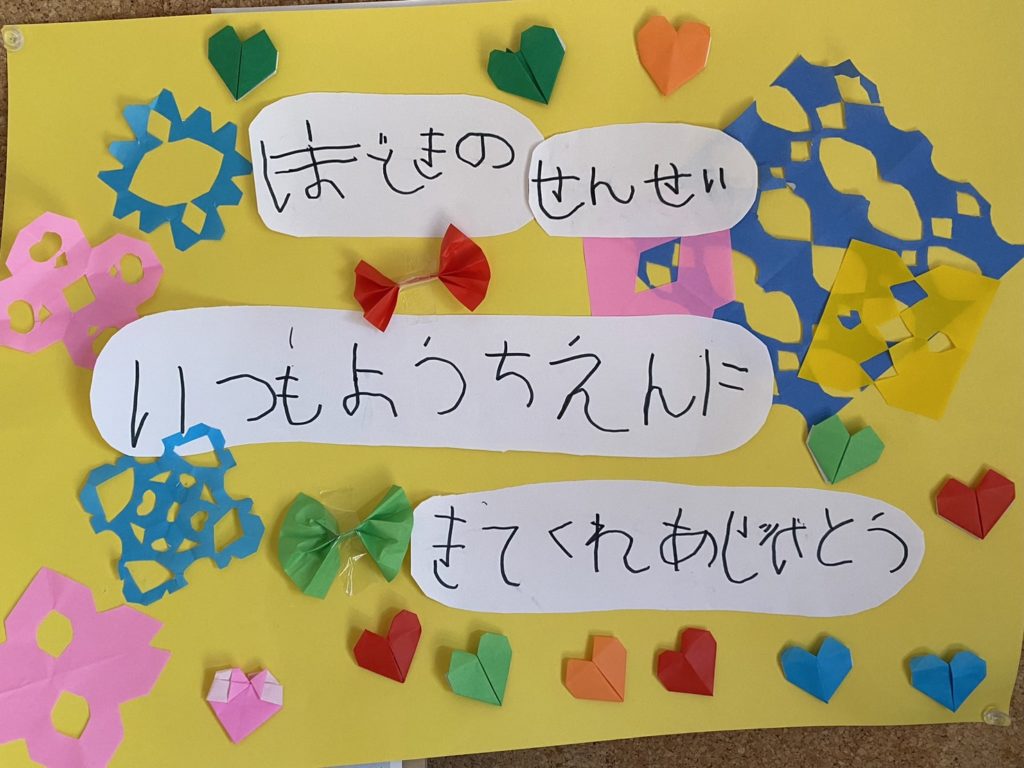 ほどきの せんせい
いつもようちえんに
きてくれありがとう